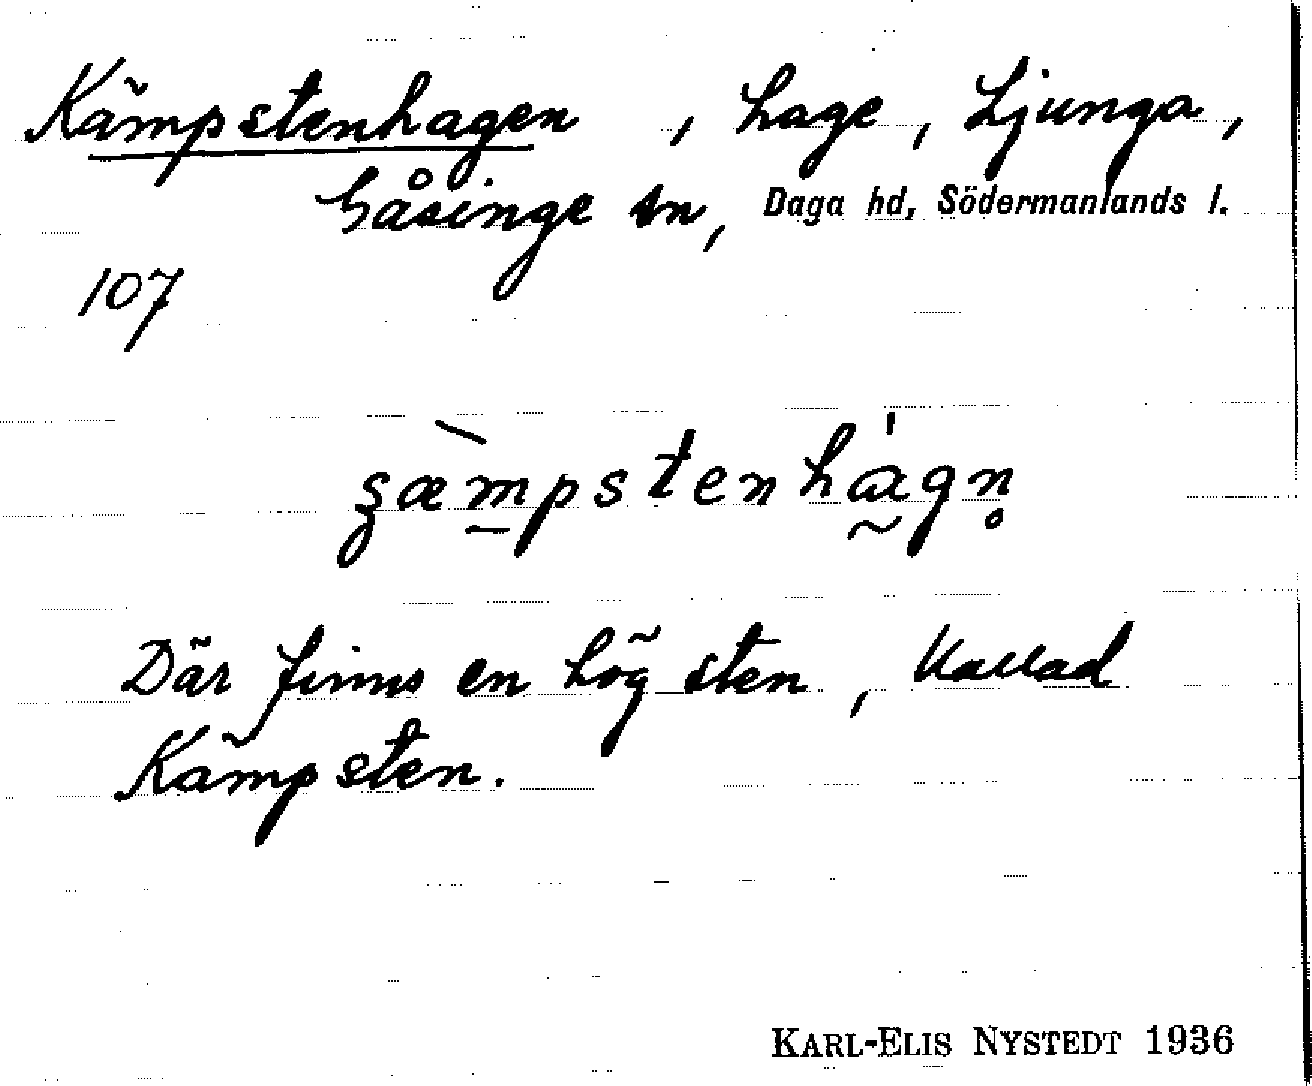 Kämpstenhagen, hage, Ljunga,
Gåsinge sn, Daga hd, Södermanlands l.
107
Där finns en hög sten, kallad
Kämpsten.
KARL-ELIS NYSTEDT 1936